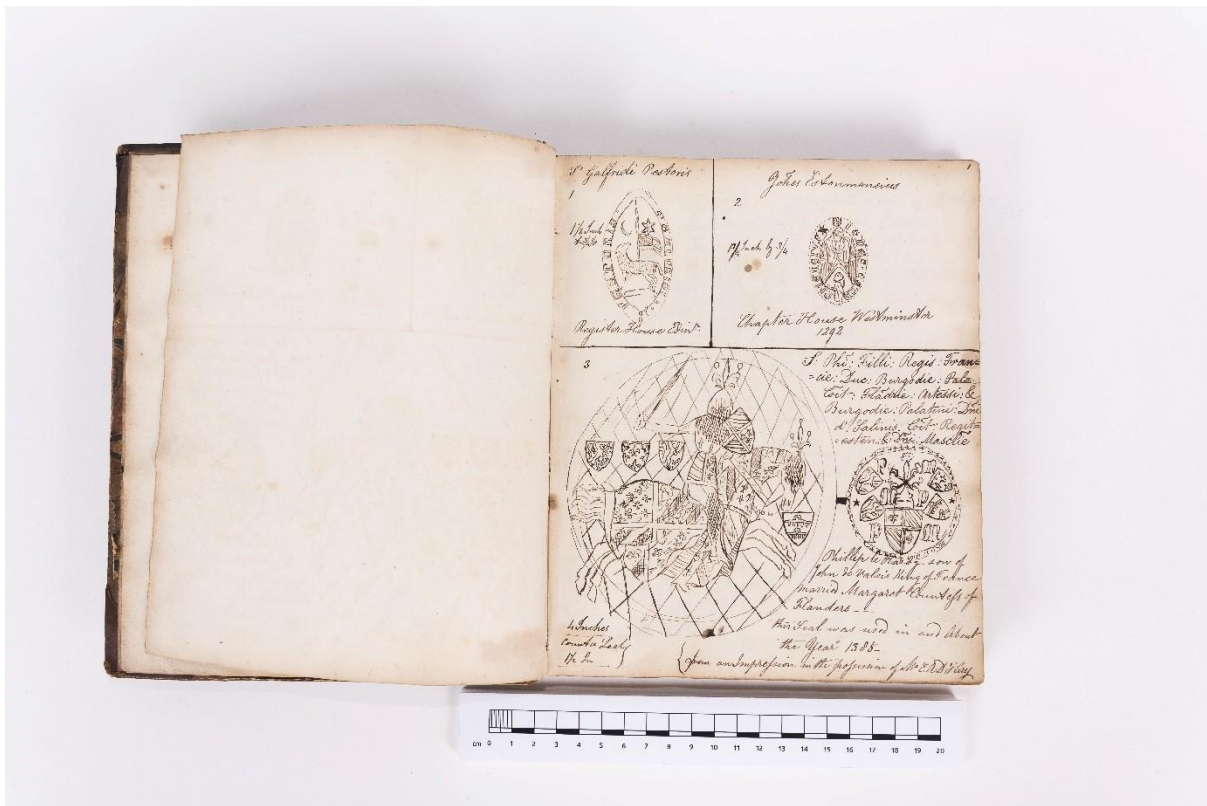 1
S' Galfridi Pestoris
1
1½ Inch
Register House Edinr.
2
Chapter House Westminster
1292
3
S. Phi: Filli: Regis: Fran=
=cie: Duc: Burgodie: Pala
Coit: Fladrie: Artessi: &
Burgodie: Palatini: Dni
d' Salinis, Coit Regit=
=esten & Dni Maschie
Phillip le Hardy son of
John de Valois King of France
married Margaret Countess of
Flanders
this Seal was used in and About
the Year 1385
from an Impression in the possession of Mr
4 Inches
Counter Seal
1½ In
cm 0 1 2 3 4 5 6 7 8 9 10 11 12 13 14 15 16 17 18 19 20